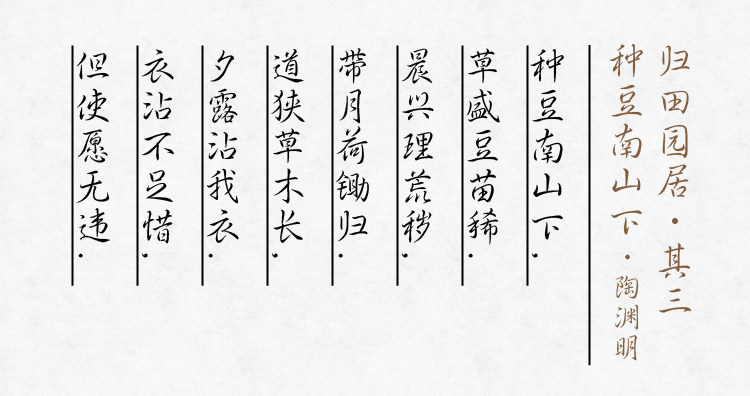 归田园居·其三
种豆南山下·陶渊明
种豆南山下,
草盛豆苗稀.
晨兴理荒秽,
带月荷锄归.
道狭草木长,
夕露沾我衣.
衣沾不足惜,
但使愿无违.